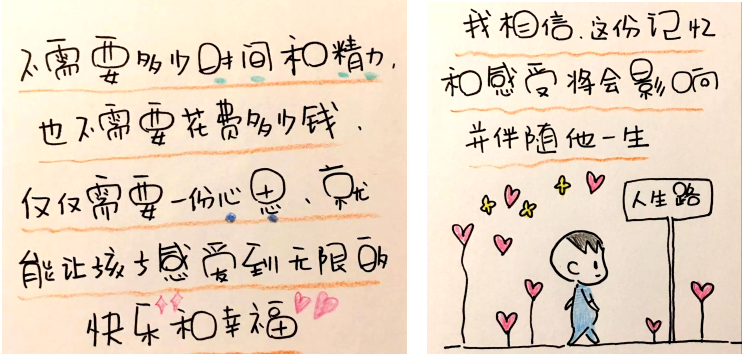 不需要多少时间和精力,
也不需要花费多少钱,
仅仅需要一份心思、就
能让孩子感受到无限的
快乐和幸福
我相信,这份记忆
和感受将会影响
并伴随他一生
人生路